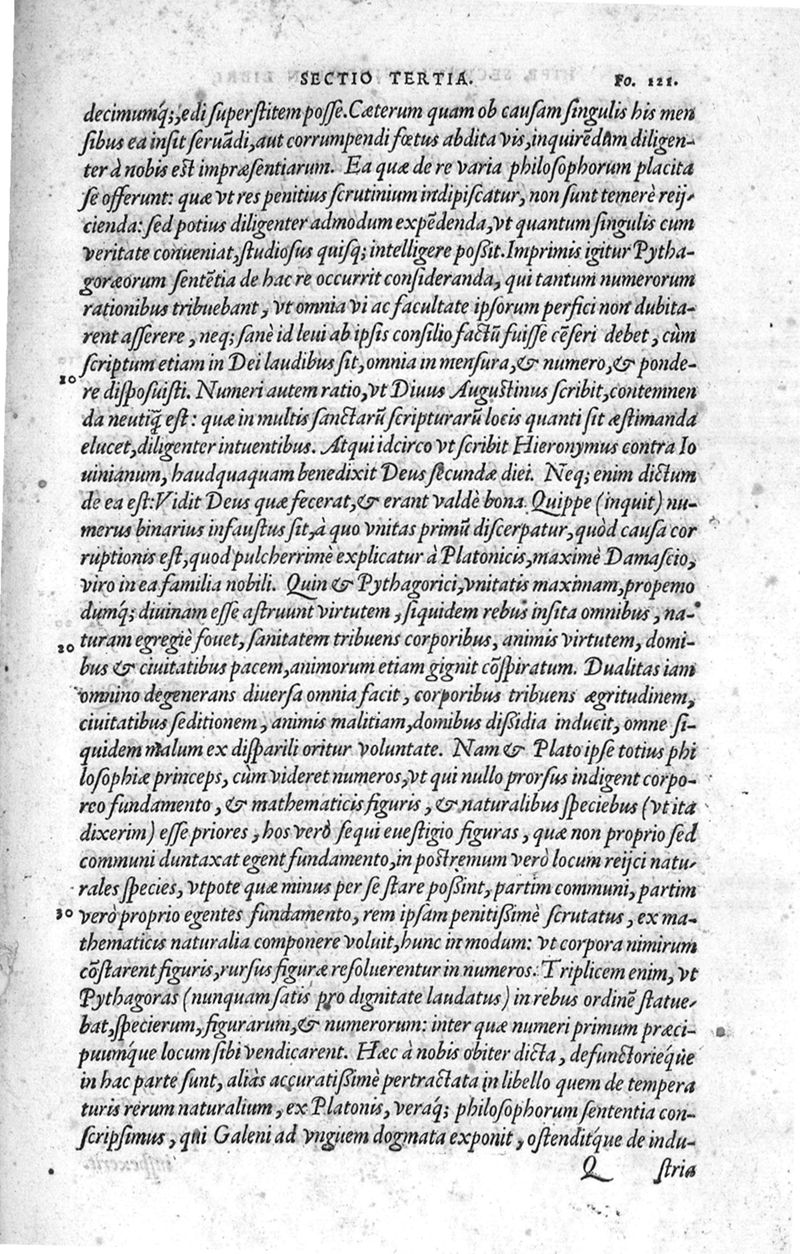 SECTIO TERTIA. Fo. 121.
decimumq́;, edi superstitem posse. Cæterum quam ob causam singulis his men
sibus ea insit seruãdi, aut corrumpendi fœtus abdita vis, inquirẽdum diligen-
ter à nobis est impræsentiarum. Ea quæ de re varia philosophorum placita
se offerunt: quæ vt res penitius scrutinium indipiscatur, non sunt temerè reij-
cienda: sed potius diligenter admodum expẽdenda, vt quantum singulis cum
veritate conueniat, studiosus quisq; intelligere possit. Imprimis igitur Pytha-
goræorum sentẽtia de hac re occurrit consideranda, qui tantum numerorum
rationibus tribuebant, vt omnia vi ac facultate ipsorum perfici non dubita-
rent asserere, neq; sanè id leui ab ipsis consilio factũ fuisse cẽseri debet, cùm
scriptum etiam in Dei laudibus sit, omnia in mensura, & numero, & ponde-
10 re disposuisti. Numeri autem ratio, vt Diuus Augustinus scribit, contemnen
da neutiq̃ est: quæ in multis sanctarũ scripturarũ locis quanti sit æstimanda
elucet, diligenter intuentibus. Atqui idcirco vt scribit Hieronymus contra Io
uinianum, haudquaquam benedixit Deus secundæ diei. Neq; enim dictum
de ea est: Vidit Deus quæ fecerat, & erant valdè bona. Quippe (inquit) nu-
merus binarius infaustus sit, à quo vnitas primũ discerpatur, quòd causa cor
ruptionis est, quod pulcherrimè explicatur à Platonicis, maximè Damascio,
viro in ea familia nobili. Quin & Pythagorici, vnitatis maximam, propemo
dumq́; diuinam esse astruunt virtutem, siquidem rebus insita omnibus, na-
20 turam egregiè fouet, sanitatem tribuens corporibus, animis virtutem, domi-
bus & ciuitatibus pacem, animorum etiam gignit cõspiratum. Dualitas iam
omnino degenerans diuersa omnia facit, corporibus tribuens ægritudinem,
ciuitatibus seditionem, animis malitiam, domibus dissidia inducit, omne si-
quidem malum ex dispárili oritur voluntate. Nam & Plato ipse totius phi
losophiæ princeps, cùm videret numeros, vt qui nullo prorsus indigent corpo-
reo fundamento, & mathematicis figuris, & naturalibus speciebus (vt ita
dixerim) esse priores, hos verò sequi euestigio figuras, quæ non proprio sed
communi duntaxat egent fundamento, in postremum verò locum reijci natu-
rales species, vtpote quæ minus per se stare possint, partim communi, partim
30 verò proprio egentes fundamento, rem ipsam penitissimè scrutatus, ex ma-
thematicis naturalia componere voluit, hunc in modum: vt corpora nimirum
cõstarent figuris, rursus figuræ resoluerentur in numeros. Triplicem enim, vt
Pythagoras (nunquam satis pro dignitate laudatus) in rebus ordinẽ statue-
bat, specierum, figurarum, & numerorum: inter quæ numeri primum præci-
puumq́ue locum sibi vendicarent. Hæc à nobis obiter dicta, defunctorieq́ue
in hac parte sunt, aliàs accuratissimè pertractata in libello quem de tempera
turis rerum naturalium, ex Platonis, veraq́; philosophorum sententia con-
scripsimus, qui Galeni ad vnguem dogmata exponit, ostenditq́ue de indu-
Q stria